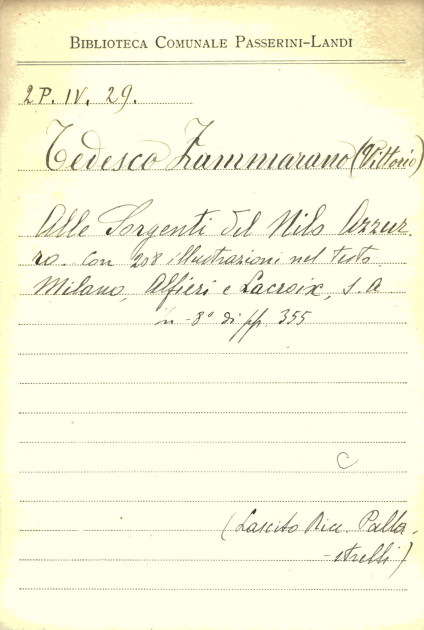 BIBLIOTECA COMUNALE PASSERINI-LANDI
2 P. IV. 29.
Tedesco Zammarano (Vittorio)
Alle Sorgenti del Nilo Azzur-
ro. con 208 illustrazioni nel testo
Milano, Alfieri e Lacroix, s. a
in -8° di pp. 355
C
(Lascito Ricc. Palla-
-strelli)